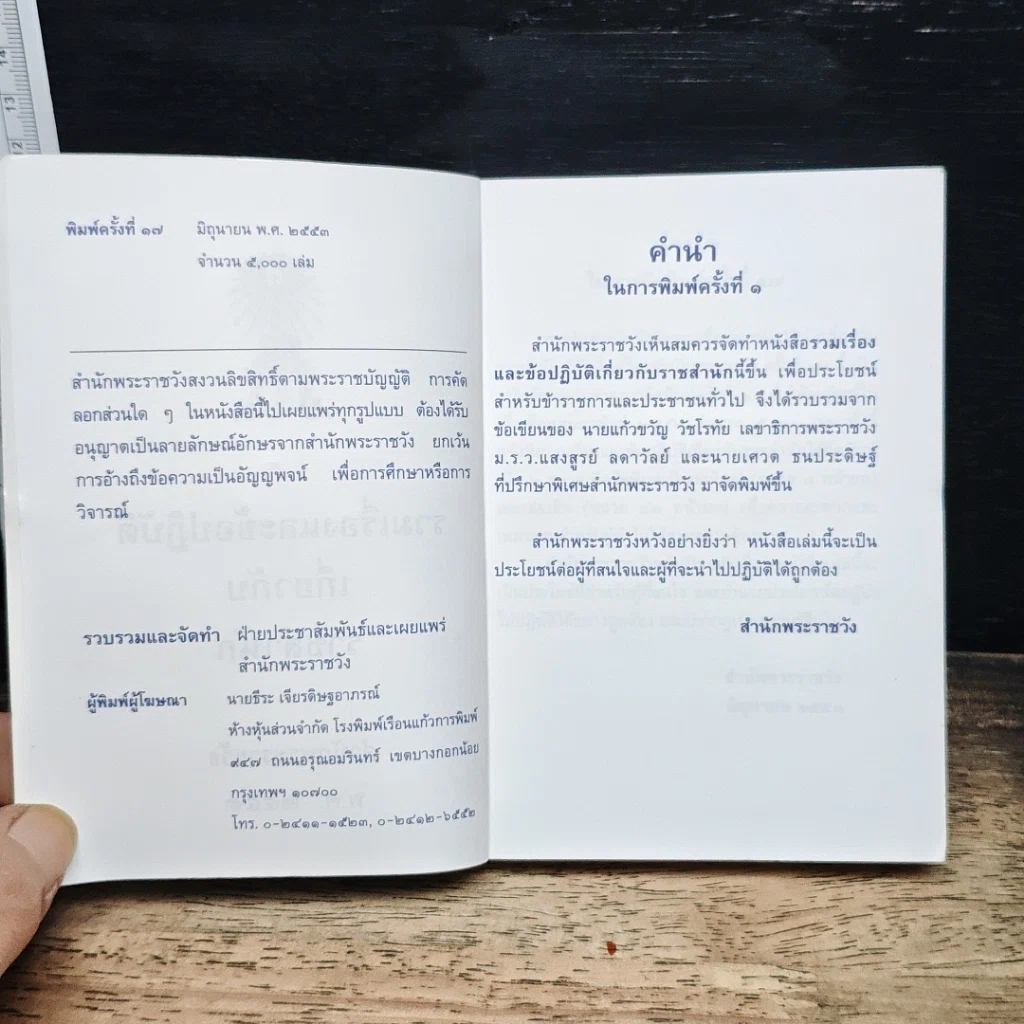 14
13
12
พิมพ์ครั้งที่ ๑๗ มิถุนายน พ.ศ. ๒๕๕๓
จำนวน ๕,๐๐๐ เล่ม
สำนักพระราชวังสงวนลิขสิทธิ์ตามพระราชบัญญัติ การคัด
ลอกส่วนใด ๆ ในหนังสือนี้ไปเผยแพร่ทุกรูปแบบ ต้องได้รับ
อนุญาตเป็นลายลักษณ์อักษรจากสำนักพระราชวัง ยกเว้น
การอ้างถึงข้อความเป็นอัญญพจน์ เพื่อการศึกษาหรือการ
วิจารณ์
รวบรวมและจัดทำ ฝ่ายประชาสัมพันธ์และเผยแพร่
สำนักพระราชวัง
ผู้พิมพ์ผู้โฆษณา นายธีระ เจียรดิษฐอาภรณ์
ห้างหุ้นส่วนจำกัด โรงพิมพ์เรือนแก้วการพิมพ์
๙๔๗ ถนนอรุณอมรินทร์ เขตบางกอกน้อย
กรุงเทพฯ ๑๐๗๐๐
โทร. ๐-๒๔๑๑-๑๕๒๓, ๐-๒๔๑๒-๖๕๕๒
คำนำ
ในการพิมพ์ครั้งที่ ๑
สำนักพระราชวังเห็นสมควรจัดทำหนังสือรวมเรื่อง
และข้อปฏิบัติเกี่ยวกับราชสำนักนี้ขึ้น เพื่อประโยชน์
สำหรับข้าราชการและประชาชนทั่วไป จึงได้รวบรวมจาก
ข้อเขียนของ นายแก้วขวัญ วัชโรทัย เลขาธิการพระราชวัง
ม.ร.ว.แสงสูรย์ ลดาวัลย์ และนายเศวต ธนประดิษฐ์
ที่ปรึกษาพิเศษสำนักพระราชวัง มาจัดพิมพ์ขึ้น
สำนักพระราชวังหวังอย่างยิ่งว่า หนังสือเล่มนี้จะเป็น
ประโยชน์ต่อผู้ที่สนใจและผู้ที่จะนำไปปฏิบัติได้ถูกต้อง
สำนักพระราชวัง